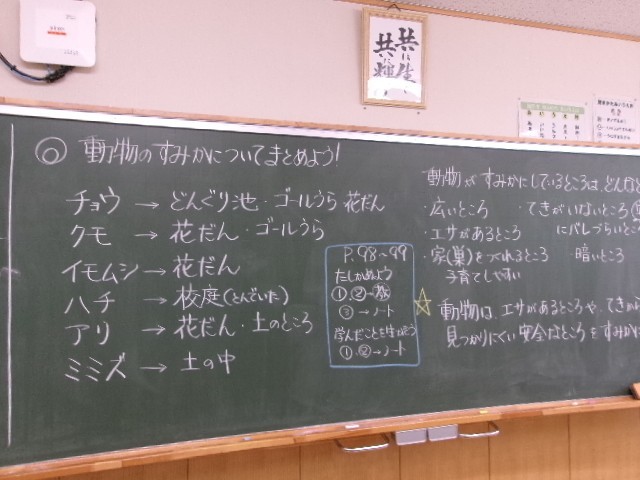 共に生
共に輝
◎ 動物のすみかについてまとめよう!
チョウ → どんぐり池・ゴールうら 花だん
クモ → 花だん・ゴールうら
イモムシ → 花だん
ハチ → 校庭(とんでいた)
アリ → 花だん・土のところ
ミミズ → 土の中
P.98〜99
たしかめよう
①,②→
③→ノート
学んだことを生かそう
①,②→ノート
動物がすみかにしているところは、どんなと
・広いところ ・てきがいないところ
・エサがあるところ にバレづらいところ
・家(巣)をつくれるところ ・暗いところ
子育てしやすい
☆動物は、エサがあるところや、てきから
見つかりにくい安全なところをすみかに